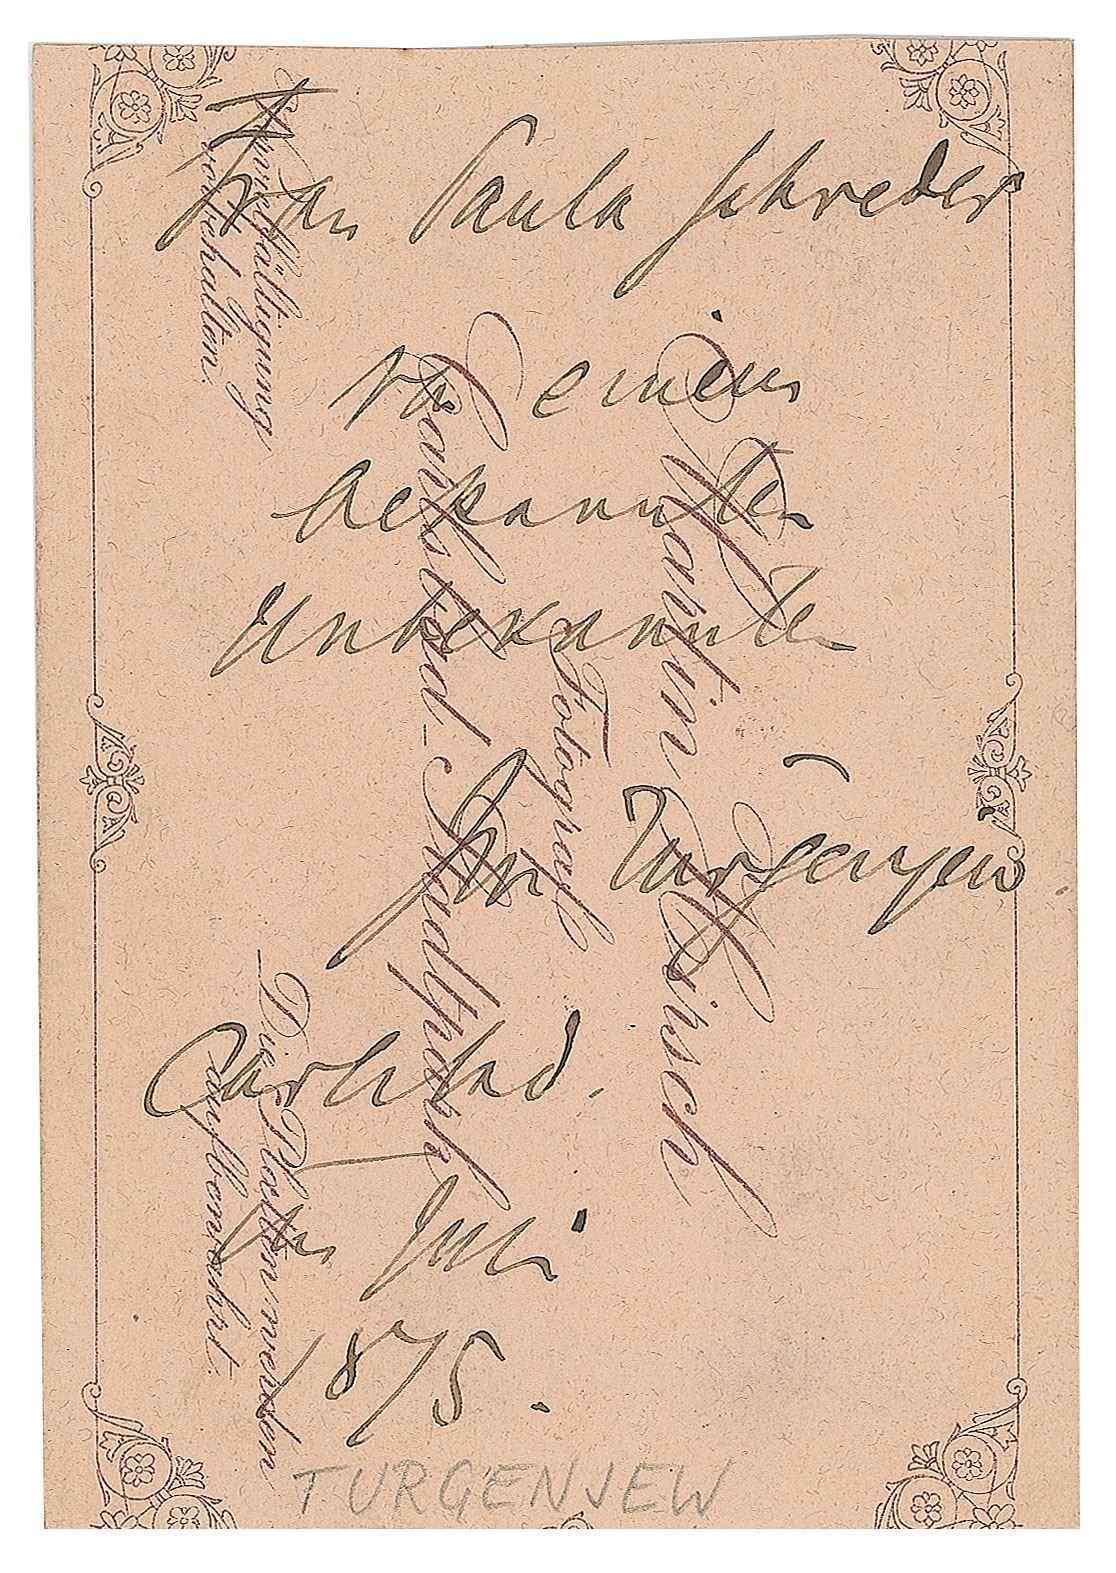 Frau Paula Schreder
von einem
bekannten
Unbekannten
Iw. Turgenjew.
Carlsbad.
Im Juli
1875.
TURGENJEW
Martin Hirsch
Fotograf
Karlsbad - Stadtpark
Die Platten werden
aufbewahrt.
Vervielfältigung
vorbehalten.